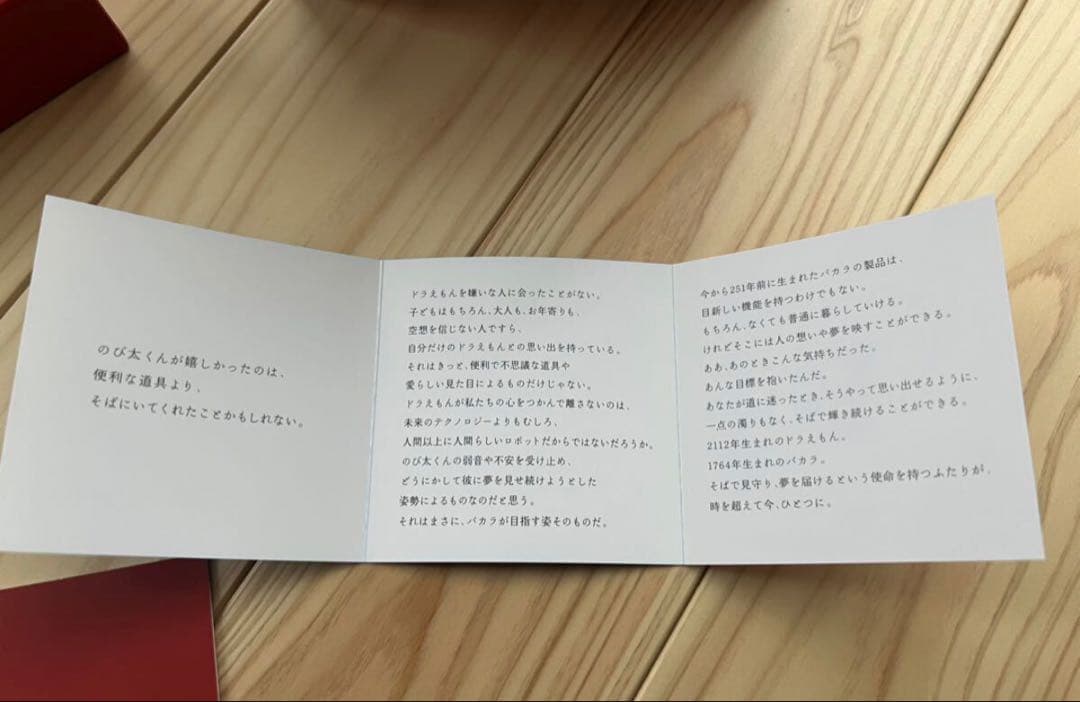 のび太くんが嬉しかったのは、
便利な道具より、
そばにいてくれたことかもしれない。
ドラえもんを嫌いな人に会ったことがない。
子どもはもちろん、大人も、お年寄りも、
空想を信じない人ですら、
自分だけのドラえもんとの思い出を持っている。
それはきっと、便利で不思議な道具や
愛らしい見た目によるものだけじゃない。
ドラえもんが私たちの心をつかんで離さないのは、
未来のテクノロジーよりもむしろ、
人間以上に人間らしいロボットだからではないだろうか。
のび太くんの弱音や不安を受け止め、
どうにかして彼に夢を見せ続けようとした
姿勢によるものなのだと思う。
それはまさに、バカラが目指す姿そのものだ。
今から251年前に生まれたバカラの製品は、
目新しい機能を持つわけでもない。
もちろん、なくても普通に暮らしていける。
けれどそこには人の想いや夢を映すことができる。
ああ、あのときこんな気持ちだった。
あんな目標を抱いたんだ。
あなたが道に迷ったとき、そうやって思い出せるように、
一点の濁りもなく、そばで輝き続けることができる。
2112年生まれのドラえもん。
1764年生まれのバカラ。
そばで見守り、夢を届けるという使命を持つふたりが、
時を超えて今、ひとつに。